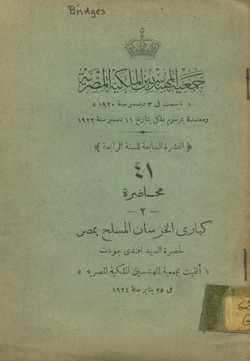 Bridges
جمعية المهندسين الملكية المصرية
« تأسست في ٣ ديسمبر سنة ١٩٢٠ »
ومعتمدة بمرسوم ملكي بتاريخ ١١ ديسمبر سنة ١٩٢٢
﴿ النشرة السابعة للسنة الرابعة ﴾
٤١
محاضرة
– ٢ –
كبارى الخرسان المسلح بمصر
لحضرة السيد افندى جودت
« ألقيت بجمعية المهندسين الملكية المصرية »
في ٢٥ يناير سنة ١٩٢٤